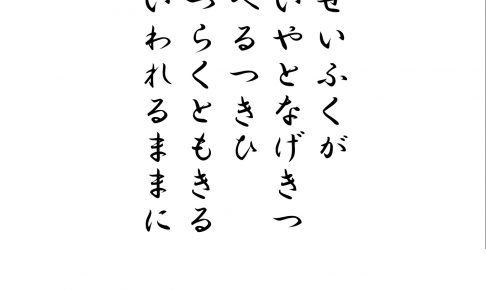 せいふくが
いやとなげきつ
へるつきひ
つらくともきる
いわれるままに